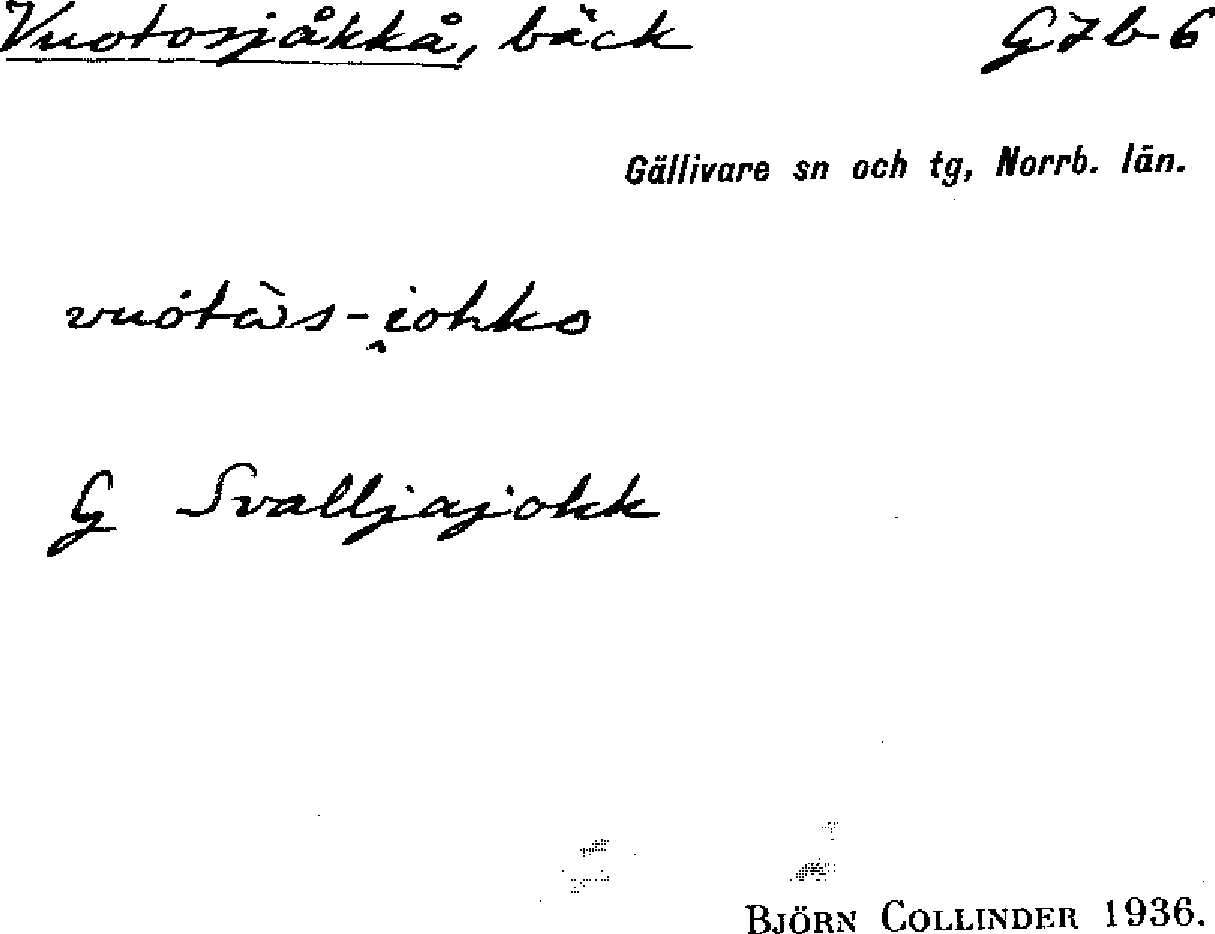 Vuotosjåkkå, bäck G7b6
Gällivare sn och tg, Norrb. län.
vuótàs-i̯ohko
G Svalljajokk
BJÖRN COLLINDER 1936.